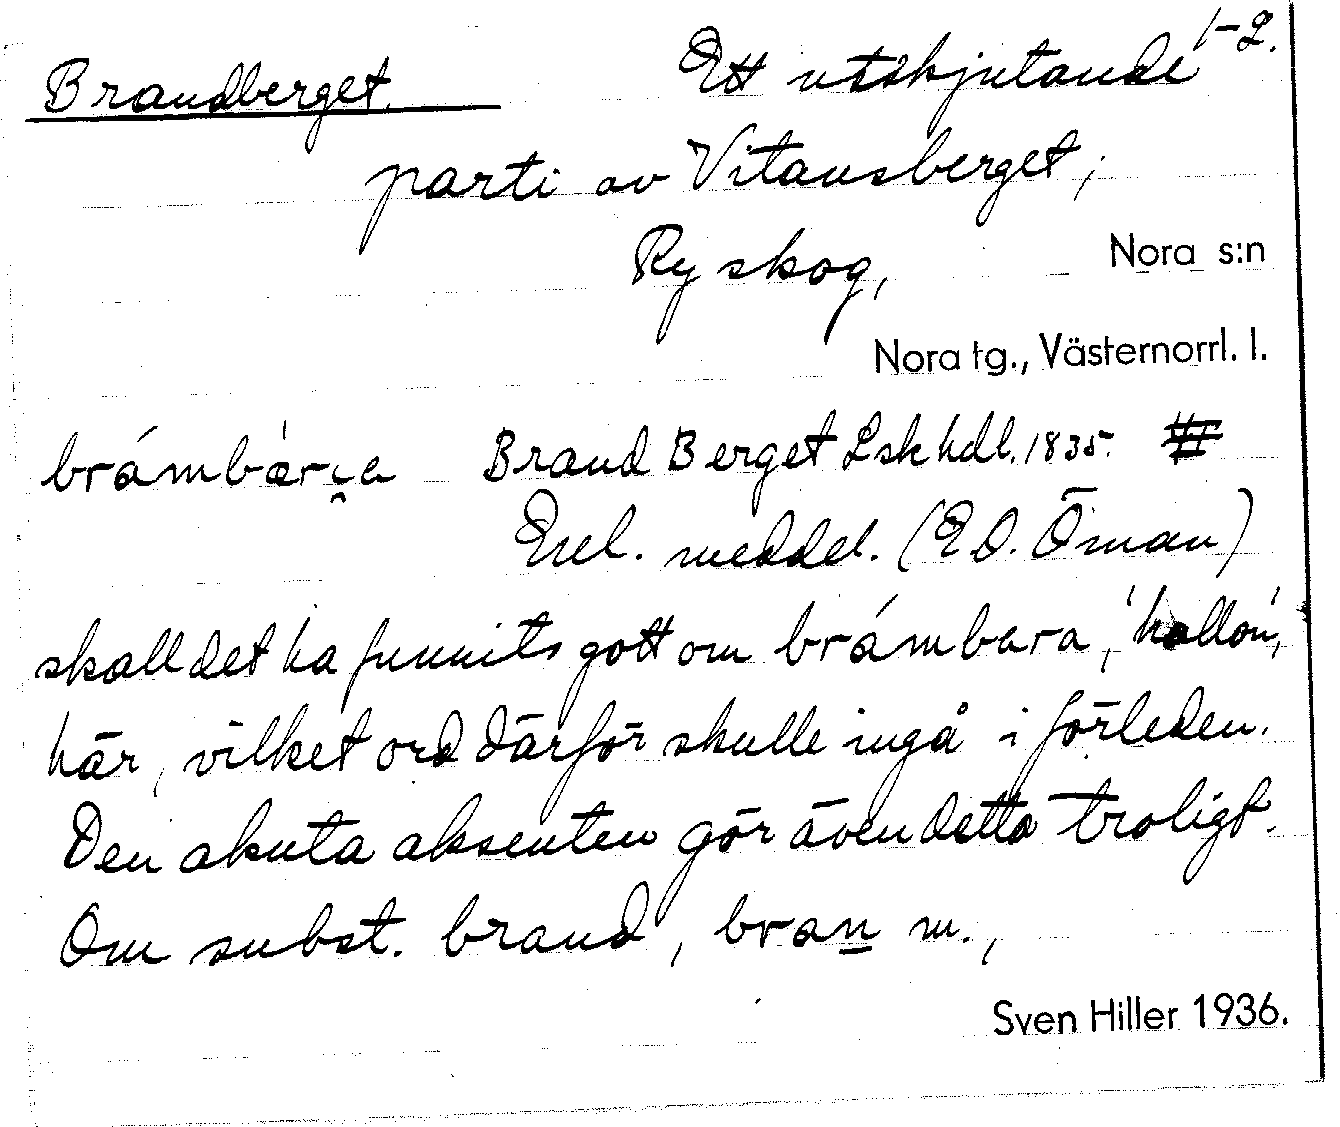 1-2.
Brandberget. Ett utskjutande
parti av Vitansberget,
Ryskog, Nora s:n
Nora tg., Västernorrl. l.
brámbær̯a Brand Berget Lskhdl. 1835.
Enl. meddel. (E O. Öman)
skall det ha funnits gott om brámbara, 'hallon',
här, vilket ord därför skulle ingå i förleden.
Den akuta aksenten gör även detta troligt.
Om subst. brand, bran m.,
Sven Hiller 1936.